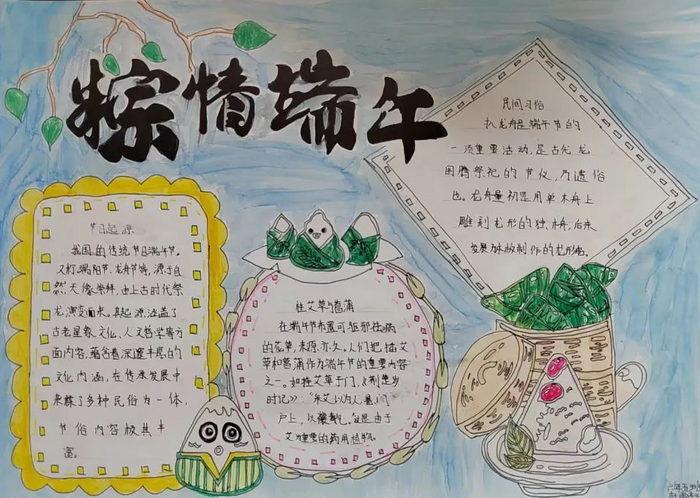 粽情端午
节日起源
我国的传统节日端午节。
又称端阳节、龙舟节等,源于自
然天象崇拜,由上古时代祭
龙演变而来。其起源涵盖了
古老星象文化、人文哲学等方
面内容,蕴含着深邃丰厚的
文化内涵,在传承发展中
杂糅了多种民俗为一体,
节俗内容极其丰
富。
挂艾草与菖蒲
在端午节布置可驱邪祛病
的花草,来源亦久。人们把插艾
草和菖蒲作为端午节的重要内容
之一。如挂艾草于门,《荆楚岁
时记》:“采艾以为人,悬门
户上,以禳毒气。”这是由于
艾为重要的药用植物。
民间习俗
扒龙舟是端午节的
一项重要活动,是古代龙
图腾祭祀的节仪,乃遗俗
也。龙舟最初是用单木舟上
雕刻龙形的独木舟,后来
发展为木板制作的龙形船。